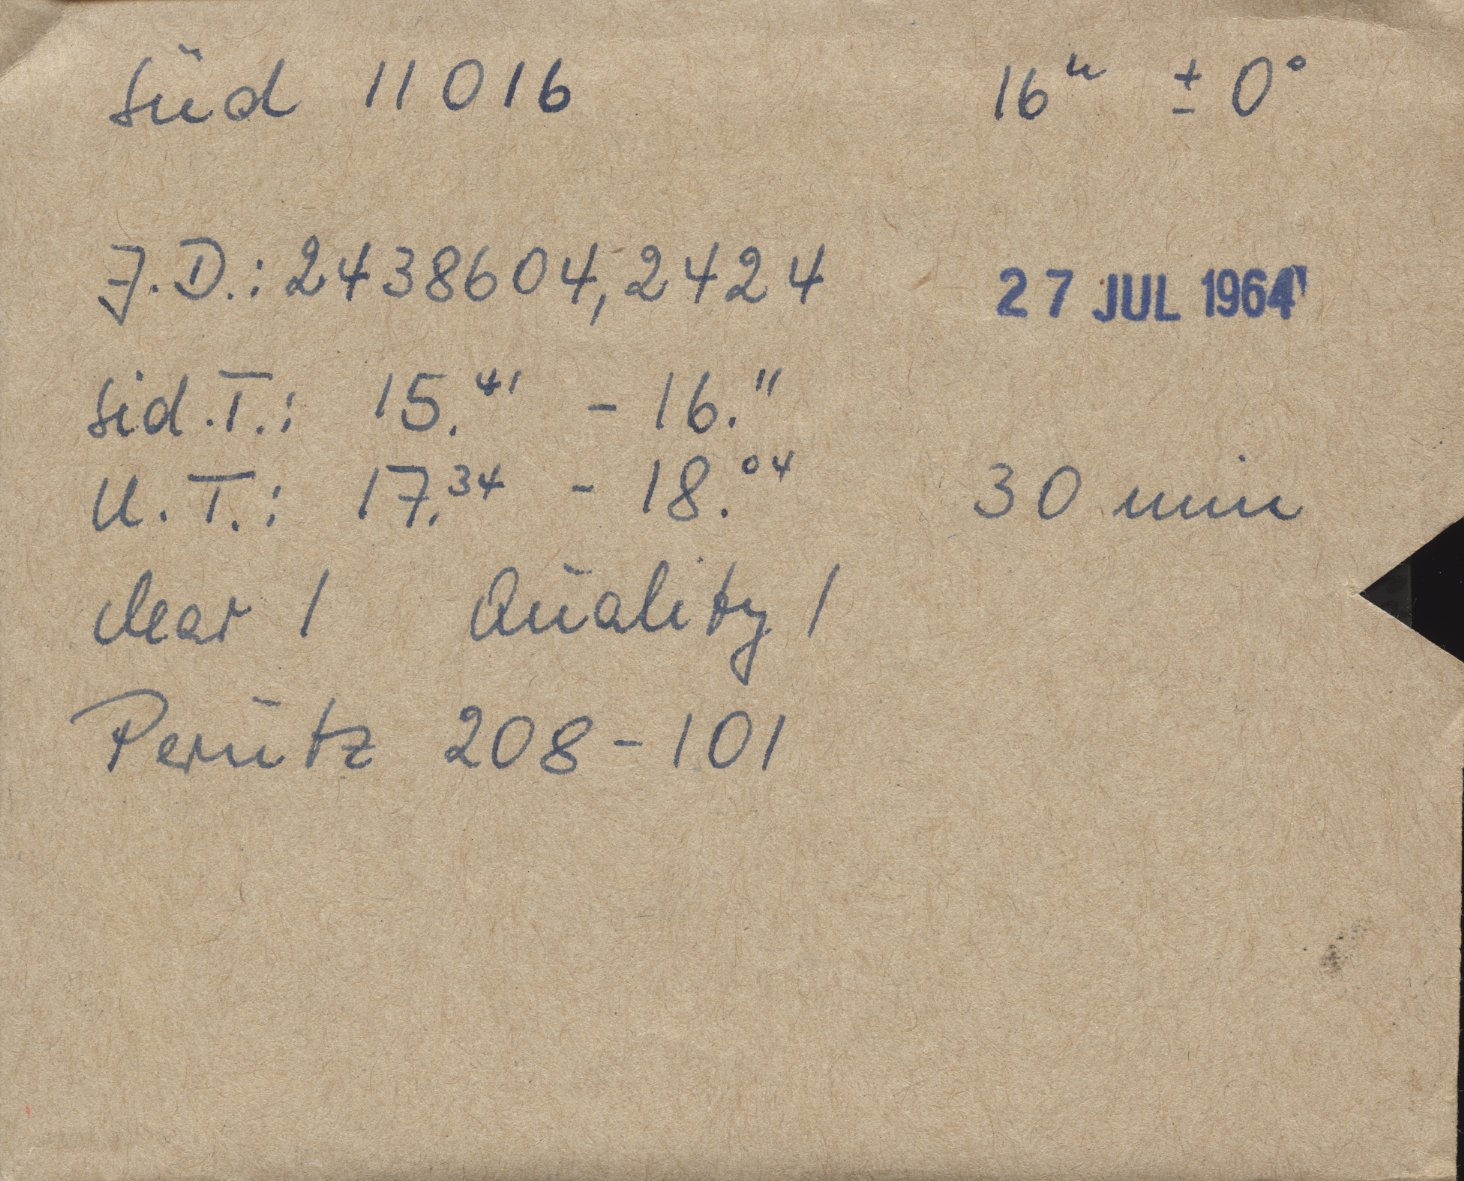 Süd 11016 16ʰ ± 0°
J.D.: 2438604,2424 27 JUL 1964
Sid.T.: 15.⁴¹ - 16.¹¹
U.T.: 17.³⁴ - 18.⁰⁴ 30 min
clear 1 Quality 1
Perutz 208-101